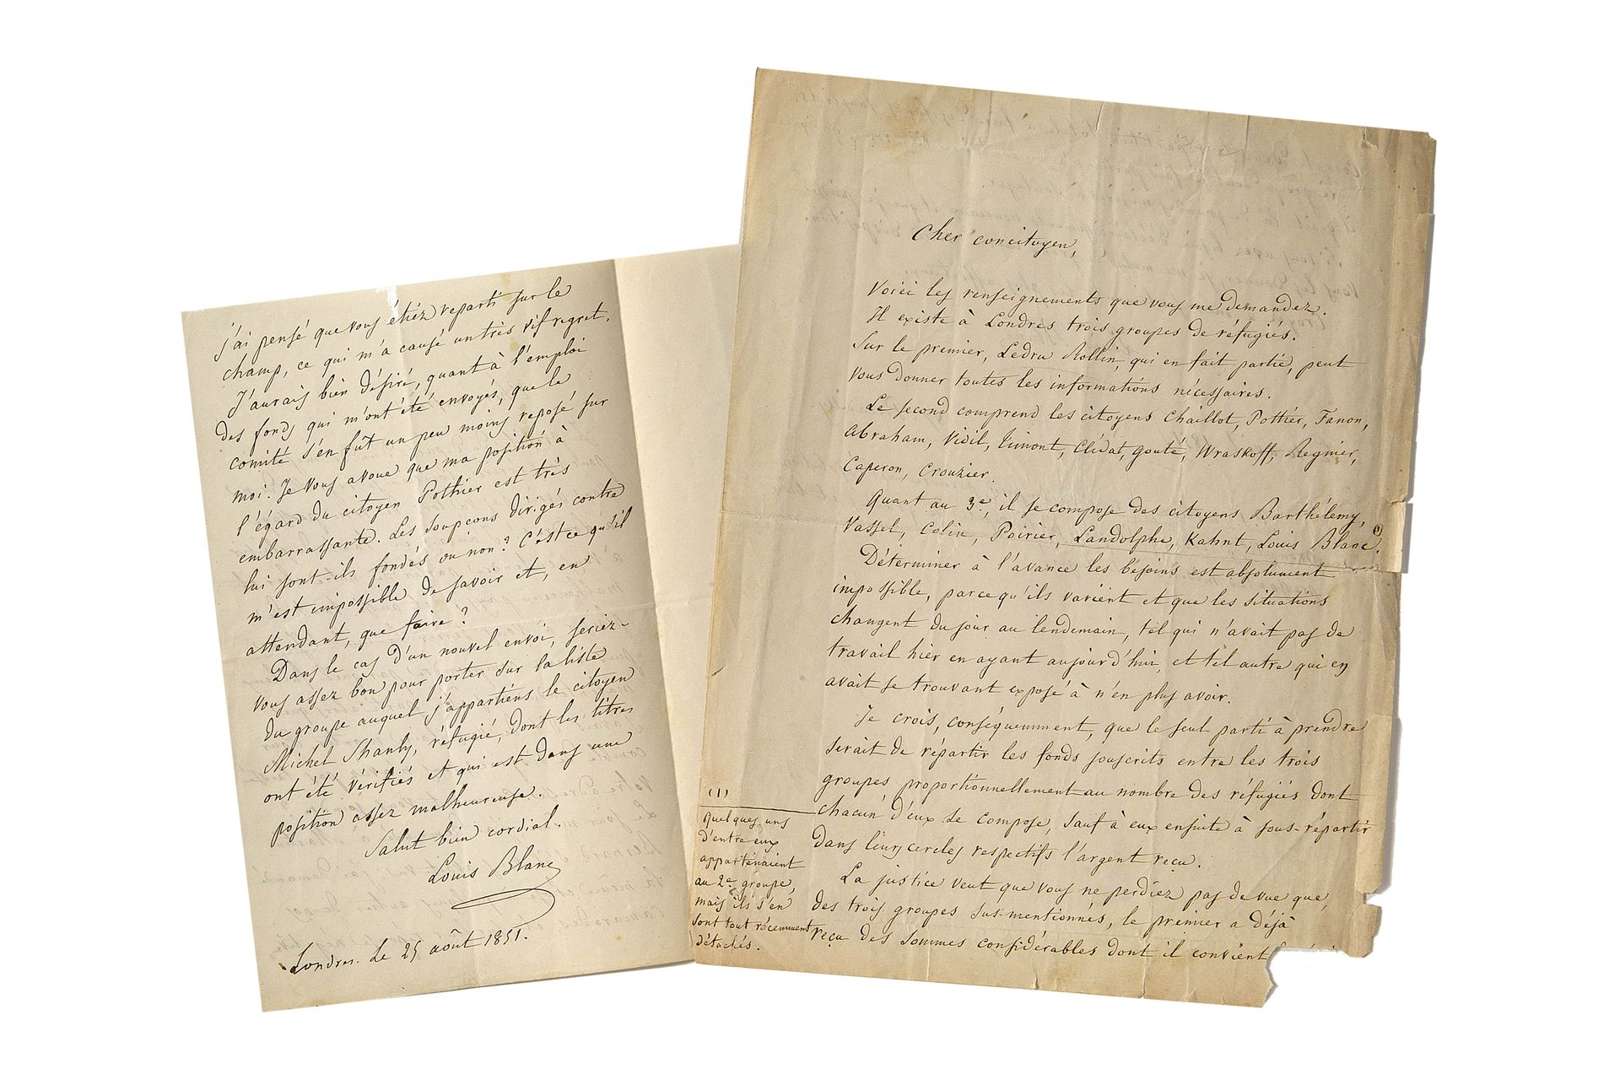 j'ai pensé que vous étiez reparti sur le
champ, ce qui m'a causé un très vif regret.
J'aurais bien désiré, quant à l'emploi
des fonds qui m'ont été envoyés, que le
comité s'en fût un peu moins reposé sur
moi. Je vous avoue que ma position à
l'égard du citoyen Pothier est très
embarrassante. Les soupçons dirigés contre
lui sont-ils fondés ou non? C'est ce qu'il
m'est impossible de savoir et, en
attendant, que faire?
Dans le cas d'un nouvel envoi, seriez-
vous assez bon pour porter sur la liste
du groupe auquel j'appartiens le citoyen
Michel, réfugié, dont les titres
ont été vérifiés et qui est dans une
position assez malheureuse.
Salut bien cordial.
Louis Blanc
Londres. Le 25 août 1851.
Cher concitoyen,
Voici les renseignements que vous me demandez.
Il existe à Londres trois groupes de réfugiés.
Sur le premier, Ledru Rollin, qui en fait partie, peut
vous donner toutes les informations nécessaires.
Le second comprend les citoyens Chaillot, Pottier, Fanon,
Abraham, Vidil, Clédat, Gouté, Wraskoff, Regnier,
Caperon, Crouzier.
Quant au 3e, il se compose des citoyens Barthélémy,
Vasset, Colin, Poirier, Landolphe, Kahnt, Louis Blanc (1).
Déterminer à l'avance les besoins est absolument
impossible, parce qu'ils varient et que les situations
changent du jour au lendemain, tel qui n'avait pas de
travail hier en ayant aujourd'hui, et tel autre qui en
avait se trouvant exposé à n'en plus avoir.
Je crois, conséquemment, que le seul parti à prendre
serait de répartir les fonds souscrits entre les trois
groupes proportionnellement au nombre des réfugiés dont
chacun d'eux se compose, sauf à eux ensuite à sous-répartir
dans leurs cercles respectifs l'argent reçu.
La justice veut que vous ne perdiez pas de vue que,
des trois groupes sus-mentionnés, le premier a déjà
reçu des sommes considérables dont il convient
(1)
quelques uns
d'entre eux
appartenaient
au 2e groupe,
mais ils s'en
sont tout récemment
détachés.